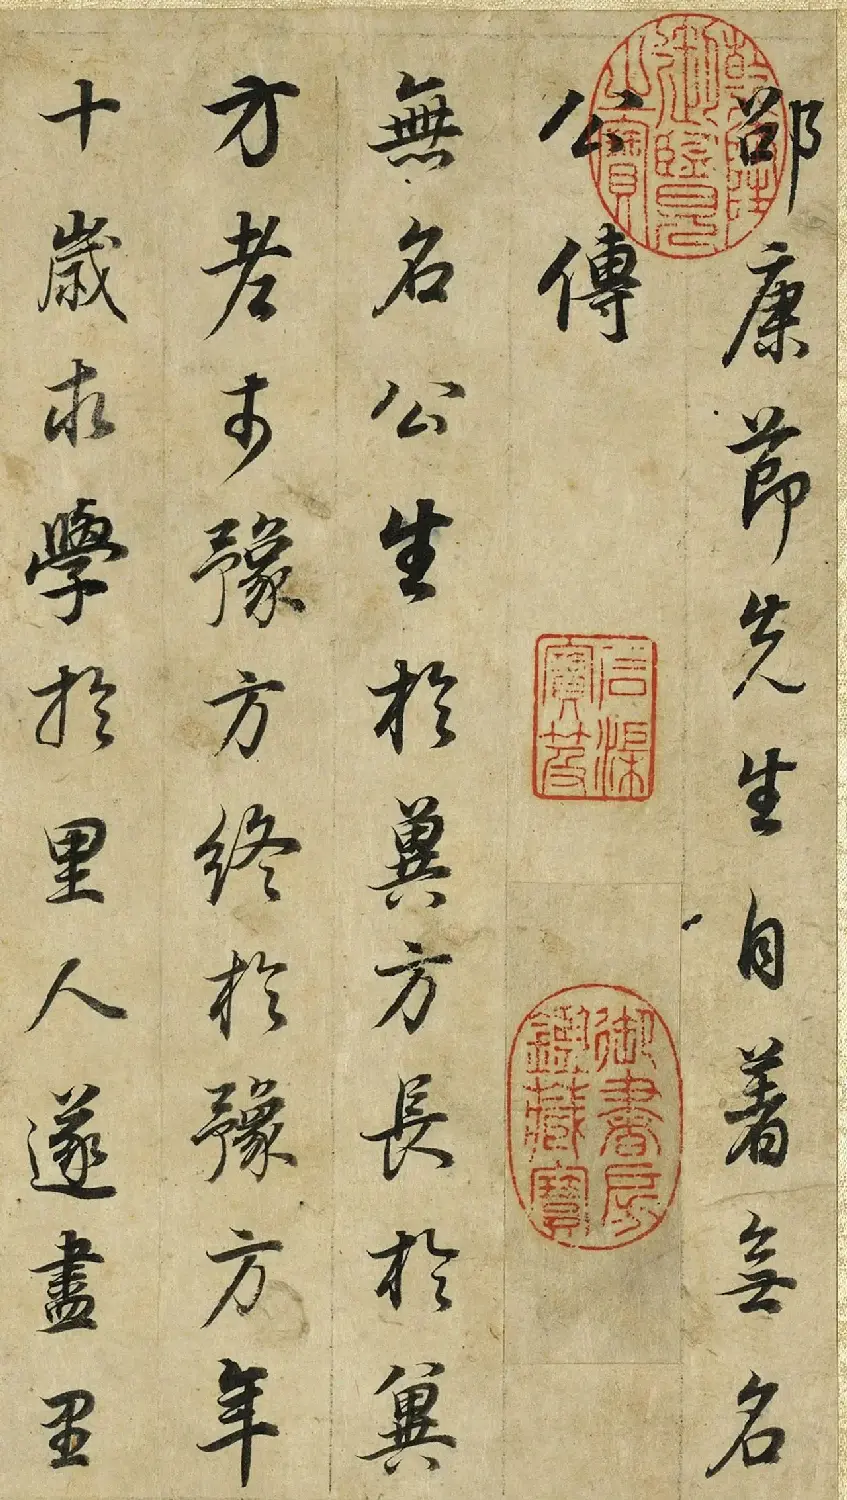 邵康節先生自著無名
公傳
無名公生於冀方長於冀
方老於豫方終於豫方年
十歲求學於里人遂盡里
乾隆
御覽
之寶
石渠
寶笈
御書房
鑑藏寶